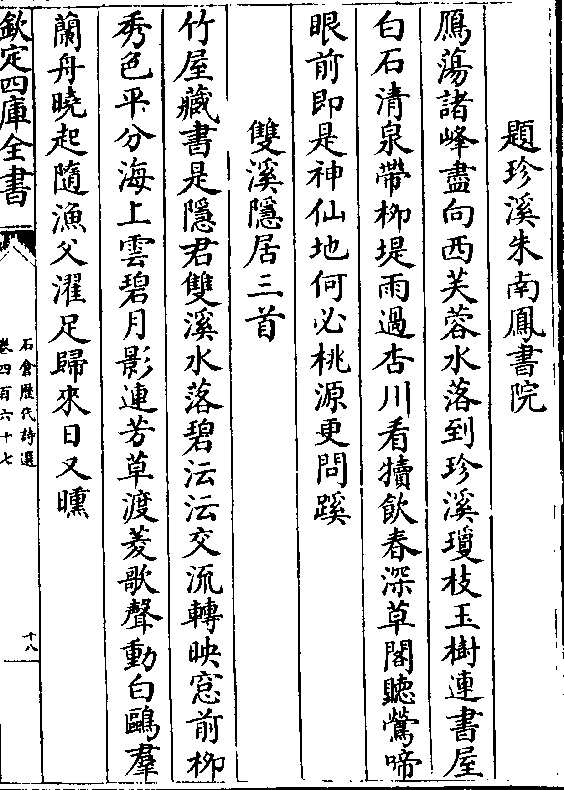 題珍溪朱南鳳書院
鴈蕩諸峰盡向西芙蓉水落到珍溪瓊枝玉樹連書屋
白石清泉帶栁堤雨過杏川看犢飲春深草閣聽鶯啼
眼前即是神仙地何必桃源更問蹊
雙溪隱居三首
竹屋藏書是隱君雙溪水落碧沄沄交流轉映窓前栁
秀色平分海上雲碧月影連芳草渡菱歌聲動白鷗羣
蘭舟曉起隨漁父濯足歸來日又曛
欽定四庫全書
石倉歷代詩選
卷四百六十七
十八